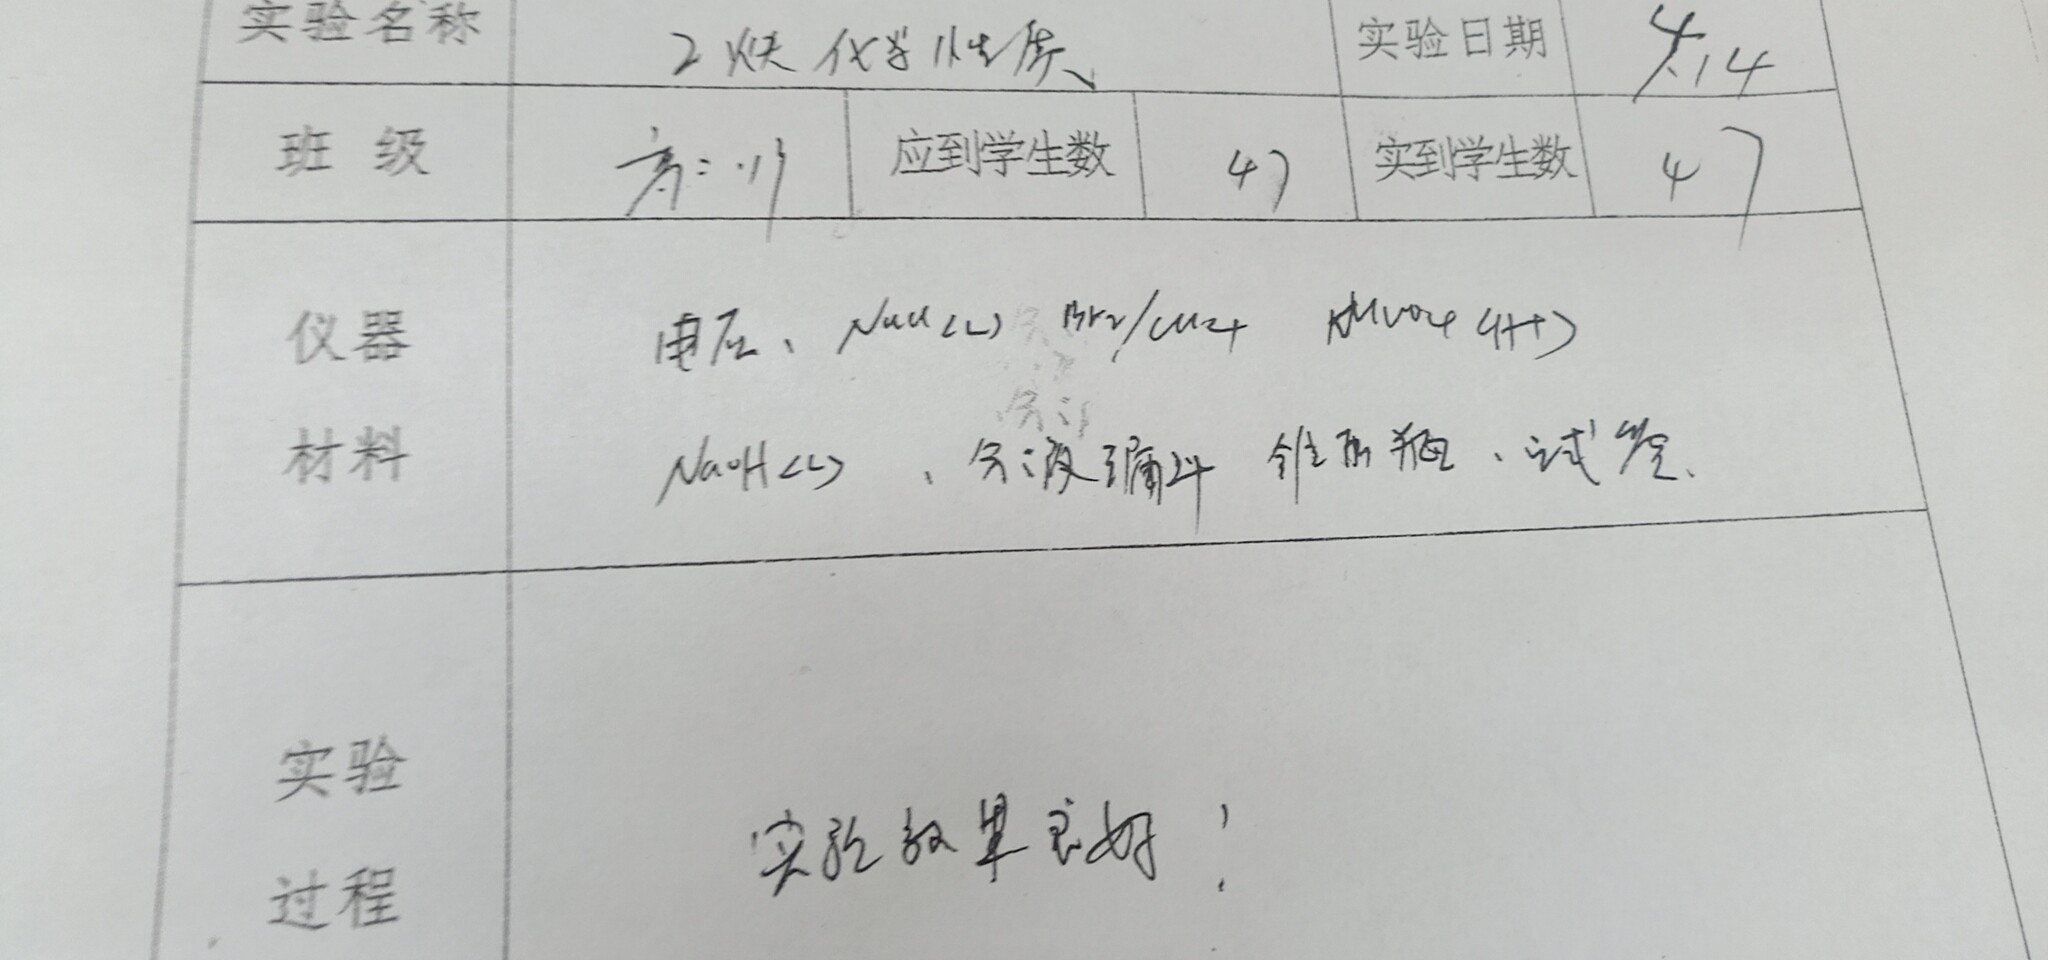 实验名称 2炔化学性质 实验日期 4.14
班 级 高二 应到学生数 47 实到学生数 47
仪器 电石、NaCl(L) Br2/CCl4 KMnO4(H+)
材料 NaOH(L)、分液漏斗 锥形瓶、试管.
实验
过程 实验效果良好！